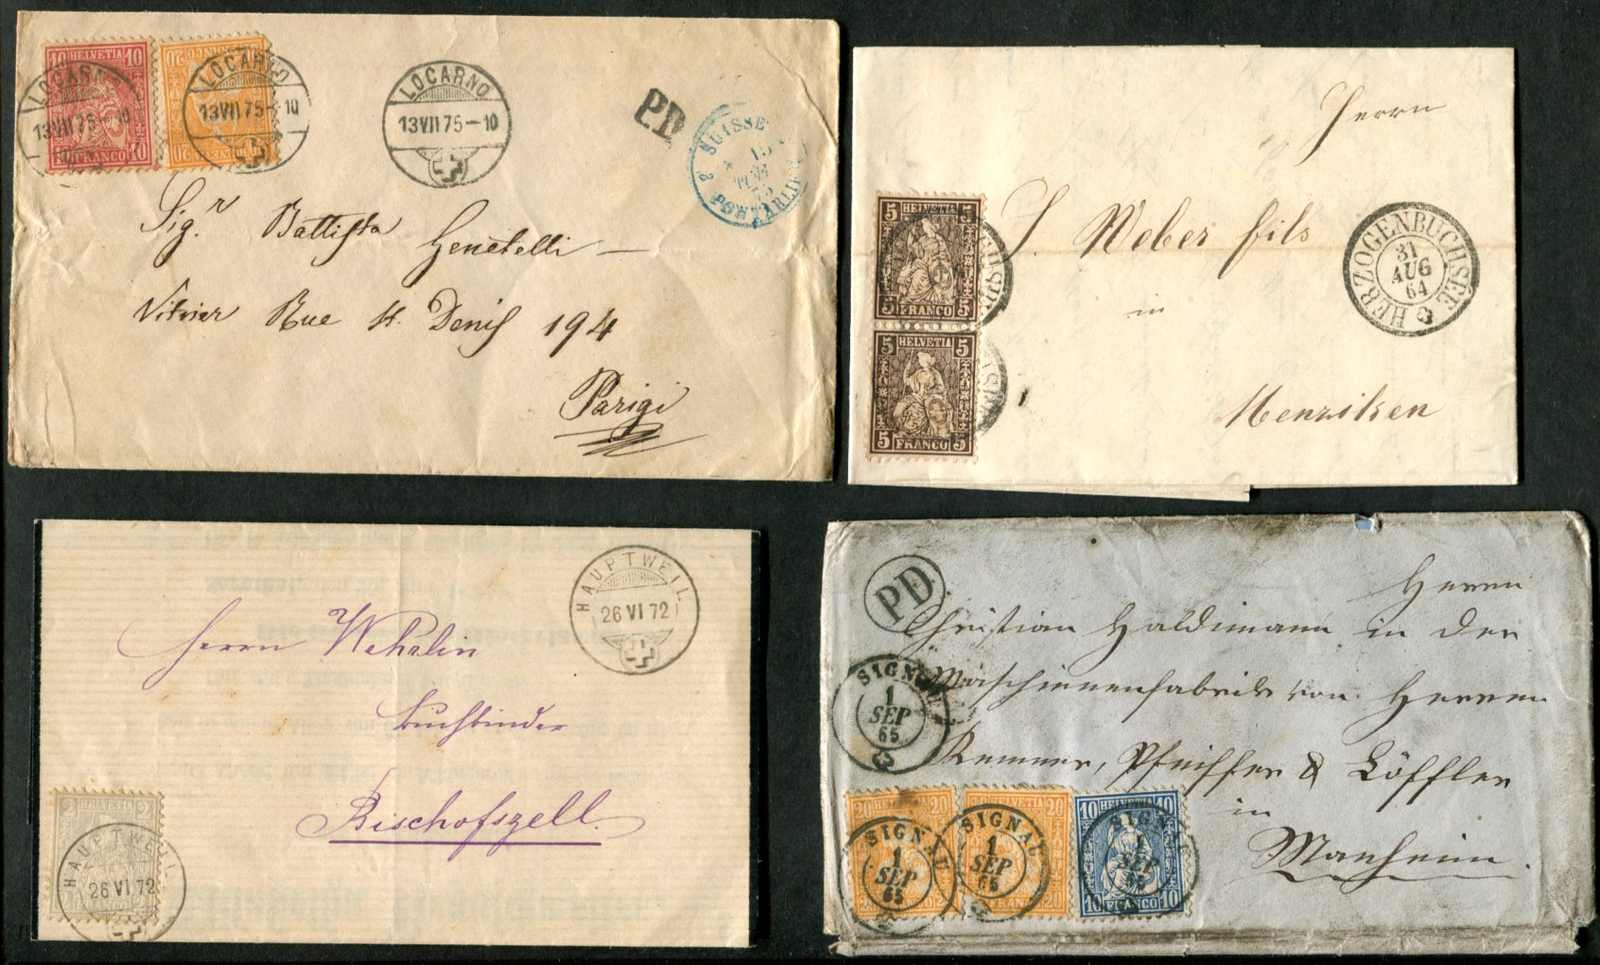 10 HELVETIA 10
10 FRANCO 10
20 HELVETIA 20
LOCARNO
13 VII 75 – 10
LOCARNO
13 VII 75 – 10
LOCARNO
13 VII 75 – 10
PD
SUISSE
15
75
PONTARLIER
Sigr Battista Genetelli
Vitrier Rue St. Denis 194
Parigi
Herrn
J. Weber fils
in
Menziken
5 HELVETIA 5
5 FRANCO 5
5 HELVETIA 5
5 FRANCO 5
HERZOGENBUCHSEE
31
AUG
64
HAUPTWEIL
26 VI 72
Herrn Wehrlin
Buchbinder
Bischofszell.
2 HELVETIA 2
HAUPTWEIL
26 VI 72
PD
Herren
Christian Haldimann in der
Maschienenfabrik von Herren
Remner, Pfeiffer & Löffler
in
Manheim.
SIGNAU
1
SEP
65
20 HELVETIA 20
SIGNAU
1
SEP
65
20 HELVETIA 20
20 FRANCO 20
SIGNAU
1
SEP
65
10 HELVETIA 10
10 FRANCO 10
SIGNAU
1
SEP
65